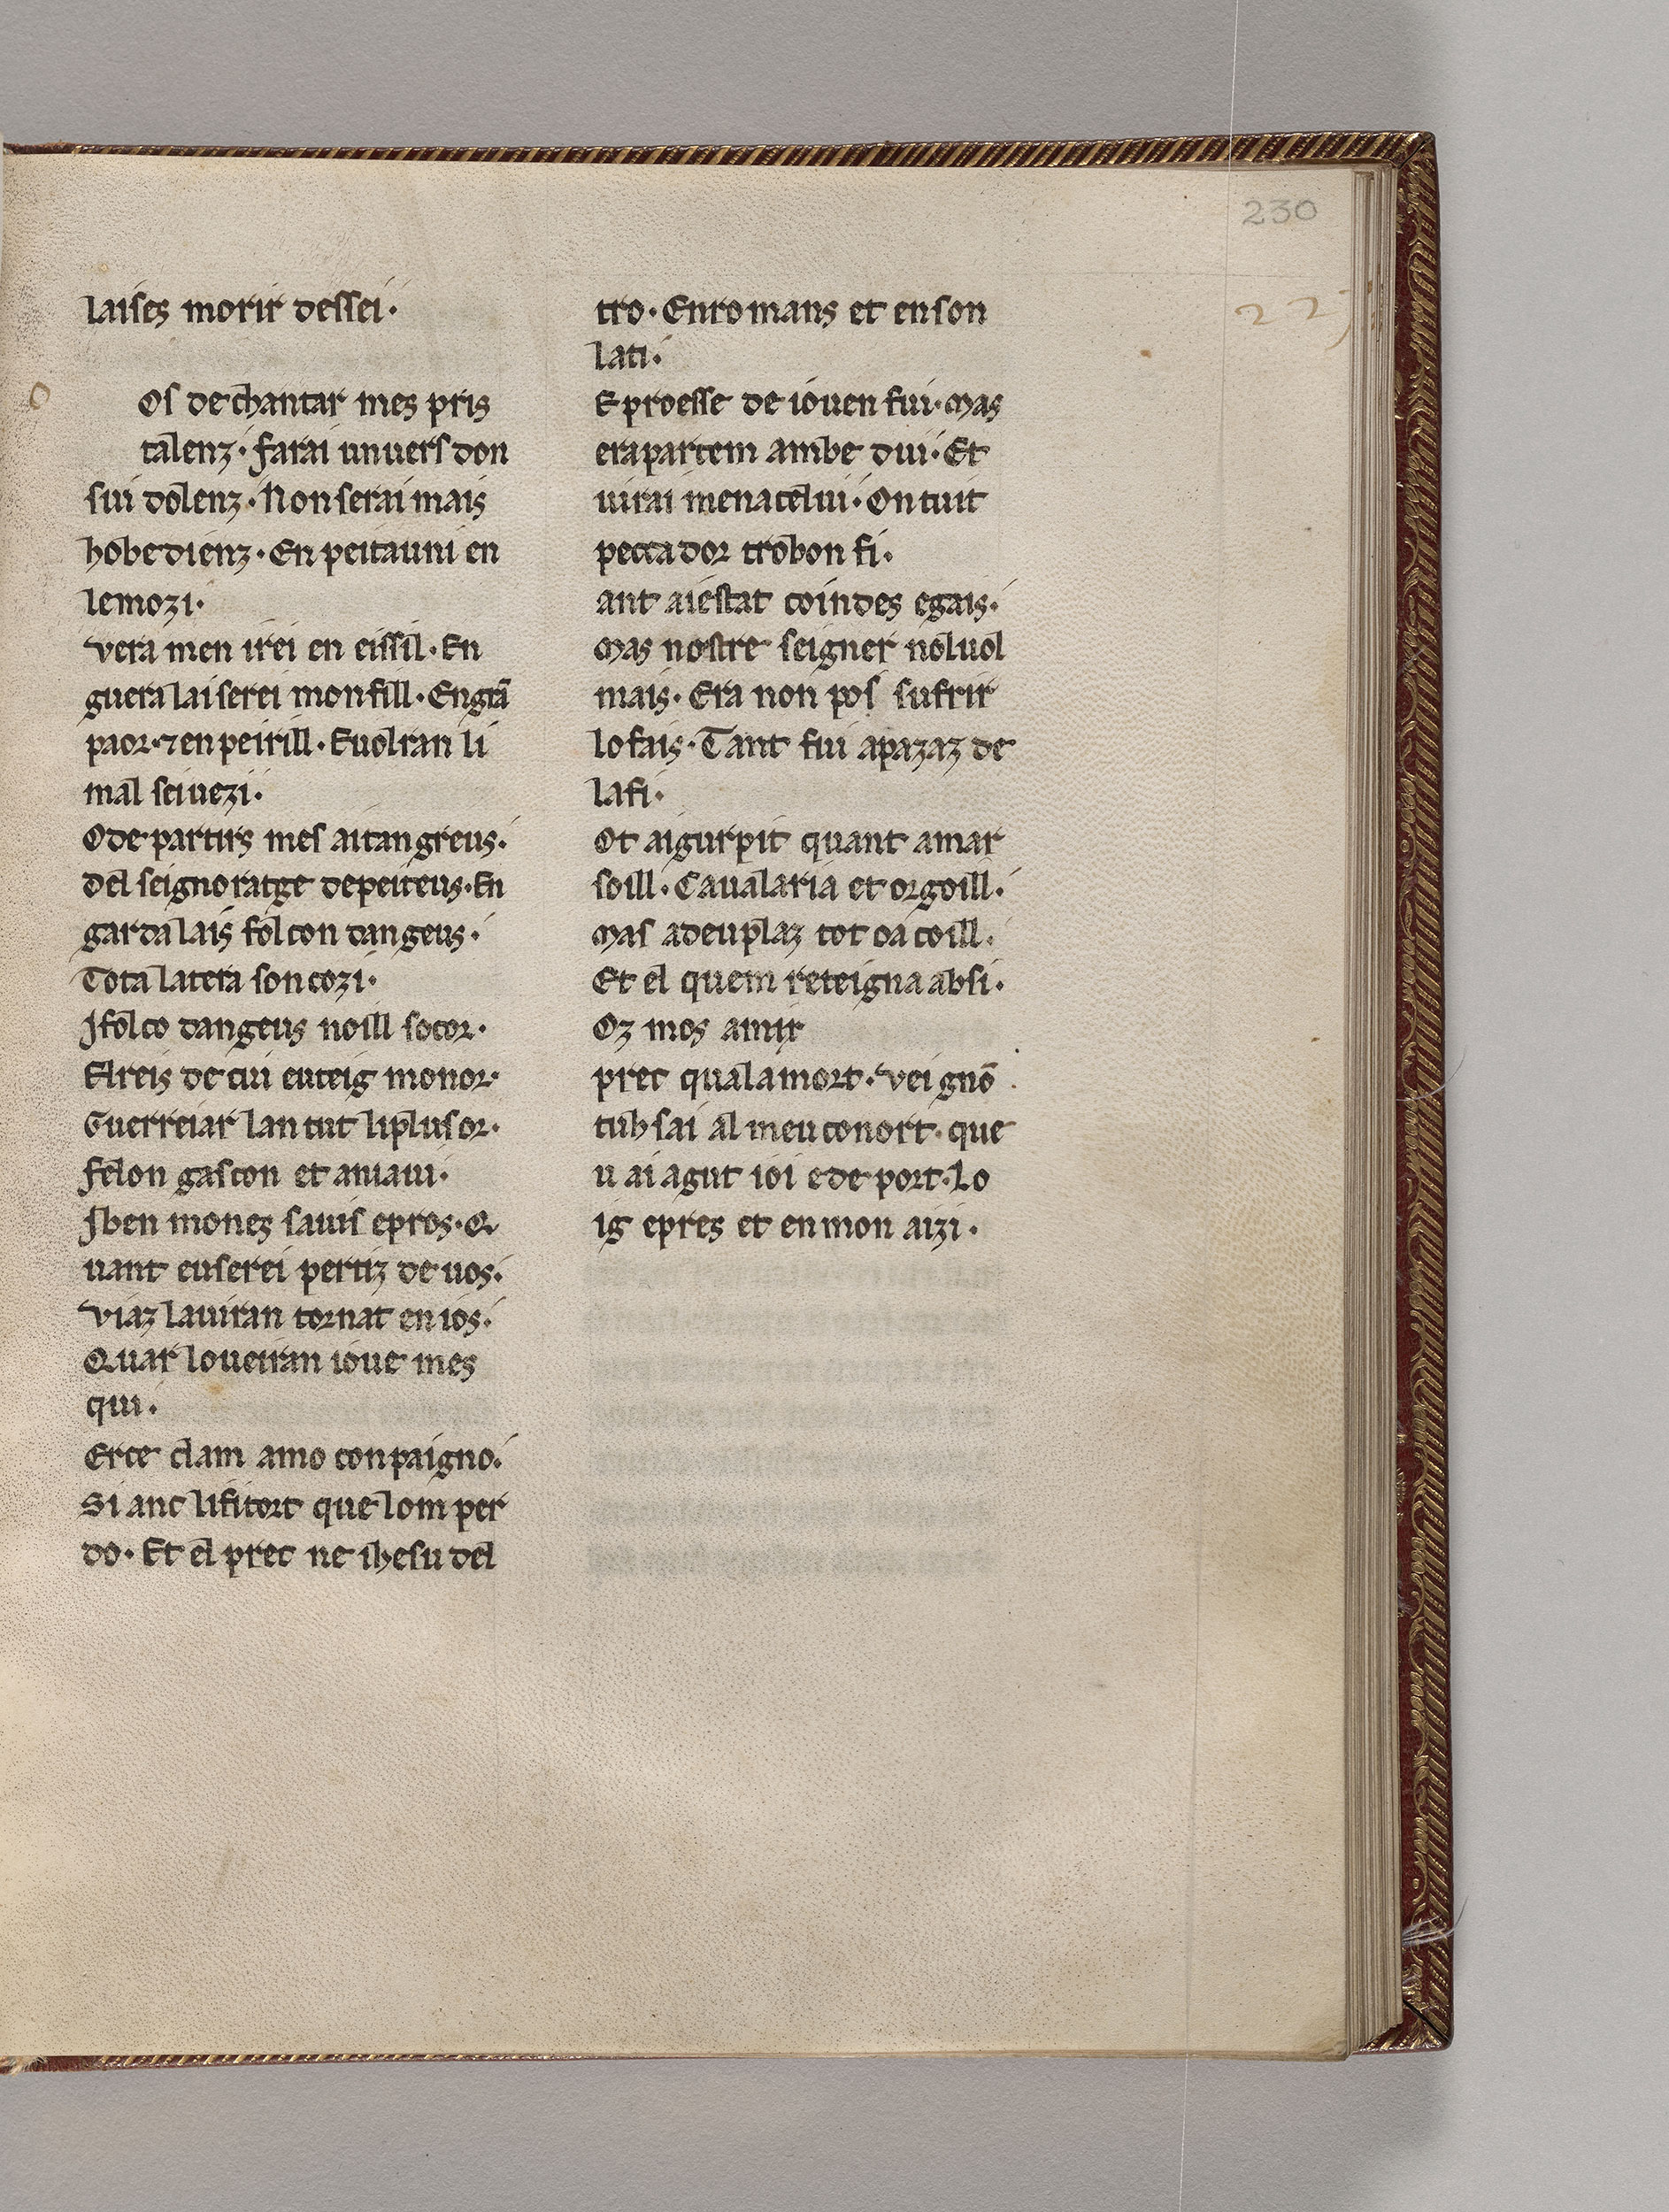 230
227
laises morir dessei·
o
Os de chantar mes pris
talenz· farai un uers don
sui dolenz· Non serai mais
hobedienz· En peitau ni en
lemozi·
Vera men irei en eissil· En
guera laiserei mon fill· En grã
paor·⁊ en peirill· E uolran li
mal sei uezi·
O de partirs mes aitan greus·
Del seignoratge de peiteus· En
garda lais folcon dangeus·
Tota la tera son cozi·
J folco dangeus noill socor·
El reis de cui eu teig monor·
Guerreiar lan tut li plusor·
felon gascon et aniaui·
J ben monez sauis e pros· Q
uant eu serei pertiz de uos·
Viaz lauiran tornat en ios·
Quar lo ueiran ioue mes
qui·
Erce clam a mo conpaigno·
Si anc li fi tort que lom per
do· Et el prec ne ihesu del
tro· En romans et en son
lati·
E proesse de iouen fui· Mas
era partem ambe dui· Et
uirai men a celui· On tuit
peccador trobon fi·
ant ai estat coindes e gais·
Mas nostre seigner nol uol
mais· Era non pos sufrir
lo fais· Tant fui apazaz de
la fi·
Ot ai gurpit quant amar
soill· Caualaria et orgoill·
Mas a deu plaz tot oa coill·
Et el quem reteigna ab si·
Oz mos amir
prec qual a mort· Veignõ
tuh sai al meu conort· que
u ai agut ioi e deport· Lo
ig e pres et en mon aizi·